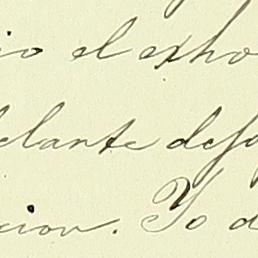 io el exho
elante defa
cion. Yo d